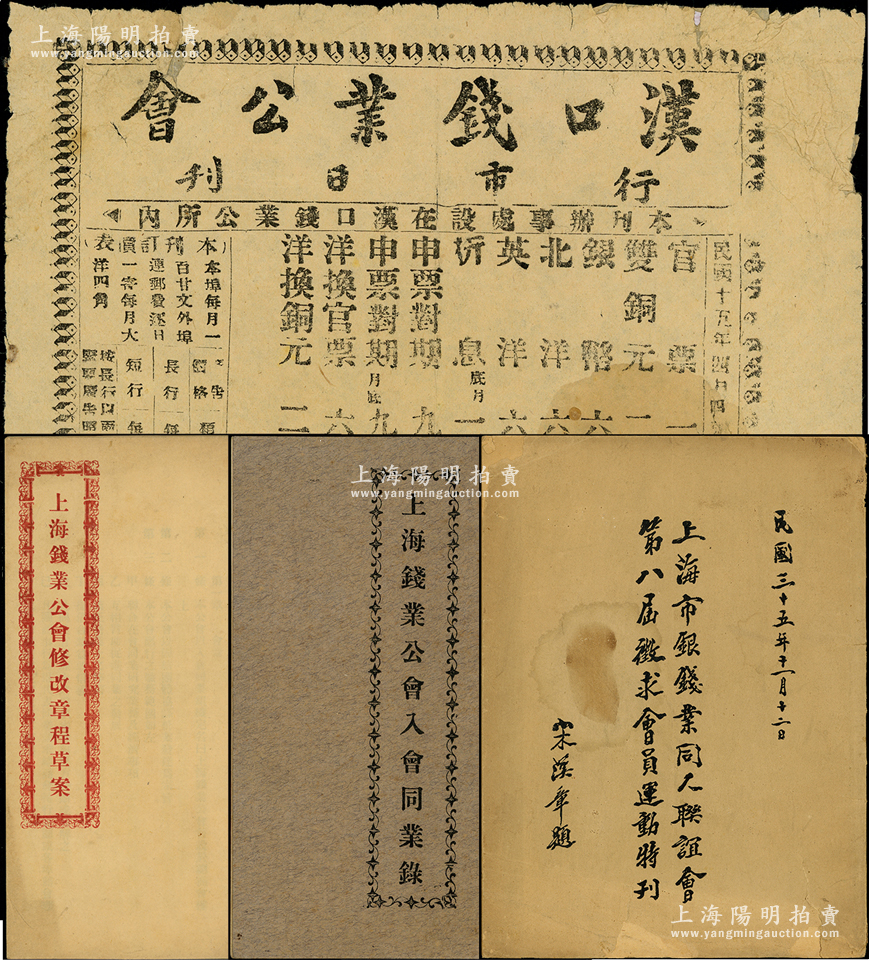 上海陽明拍賣
www.yangmingauction.com
上海陽明拍賣
www.yangmingauction.com
漢口錢業公會
行市日刊
本刊辦事處設在漢口錢業公所內
民國十五年四月四
官票 一
雙銅元 二
銀幣 六
北洋 六
英洋 六
昕息 底月 一
申票對期 九
申票對期 月底 九
洋換官票 六
洋換銅元 二
本刊訂價表
本埠每月一
百廿文外埠
連郵費逐日
一寄每月大
洋四角
長行
短行
上海陽明拍賣
www.yangmingauction.com
上海錢業公會修改章程草案
上海錢業公會入會同業錄
民國三十五年十一月十二日
上海市銀錢業同人聯誼會
第八屆徵求會員運動特刊
上海陽明拍賣
www.yangmingauction.com